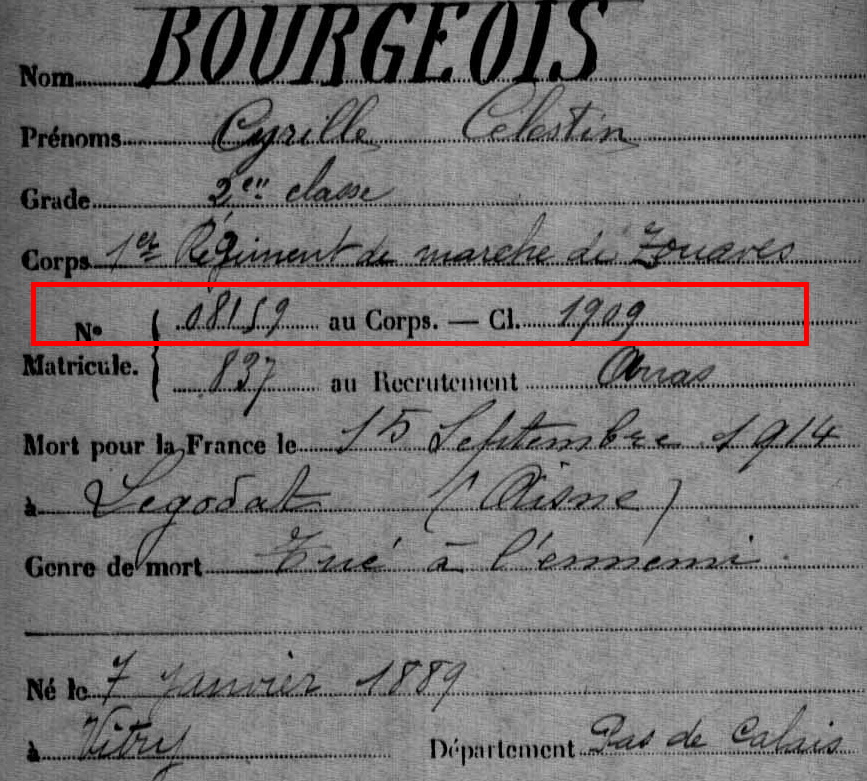 Nom BOURGEOIS
Prénoms Cyrille Celestin
Grade 2em classe
Corps 1er Régiment de marche de Zouaves
No 08159 au Corps. — Cl. 1909
Matricule. 837 au Recrutement Arras
Mort pour la France le 15 Septembre 1914
à Legodat (Aisne)
Genre de mort Tué à l'ennemi.
Né le 7 Janvier 1889
à Vitry Département Pas de Calais